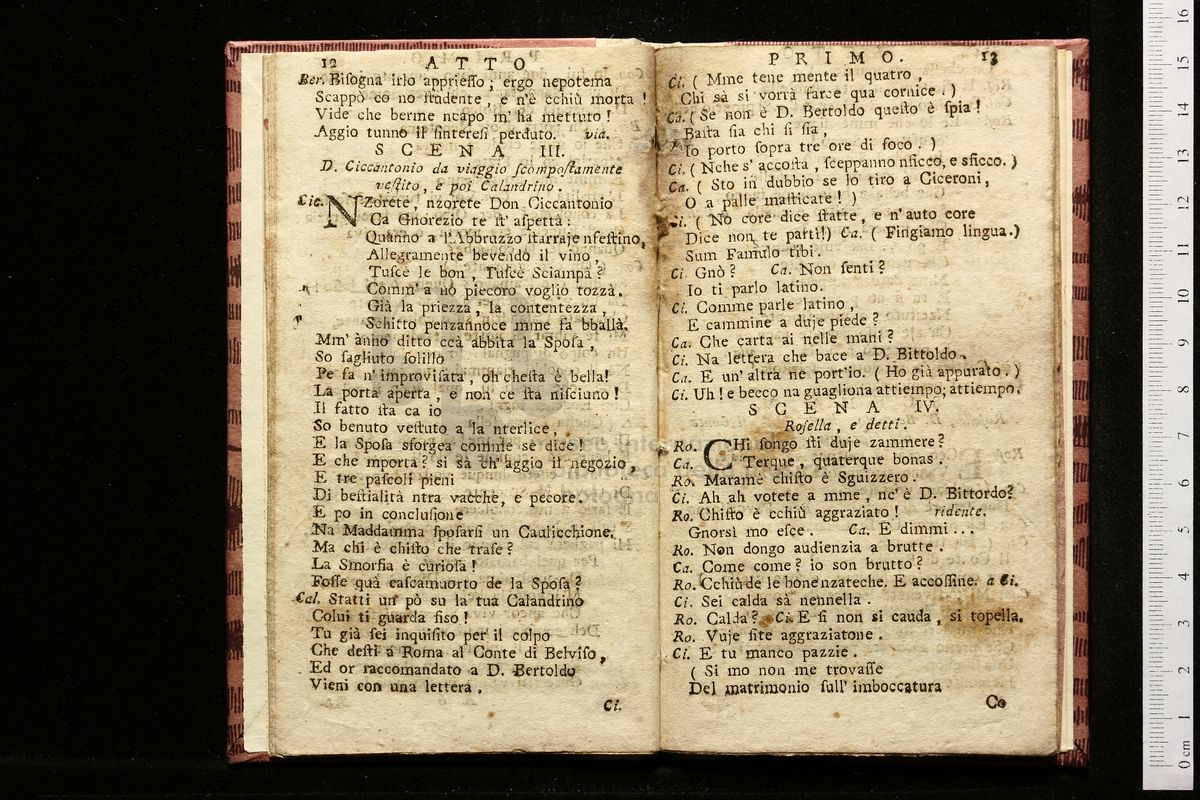 12 ATTO
Ber. Bisogna irlo appriesso; ergo nepotema
Scappò co no studente, e n'è cchiù morta!
Vide che berme ncapo m'ha mettuto!
Aggio tunno il sinteresi perduto. via.
SCENA III.
D. Ciccantonio da viaggio scompostamente
vestito, e poi Calandrino.
Cic. NZorete, nzorete Don Ciccantonio
Ca Gnorezio te st'aspetta:
Quanno a l'Abbruzzo starraje nfestino,
Allegramente bevendo il vino,
Tusce le bon, Tusce Sciampa?
Comm'a nò piecoro voglio tozzà.
Già la priezza, la contentezza,
Schitto penzannoce mme fa bballà.
Mm'anno ditto ccà abbita la Sposa,
So sagliuto solillo
Pe fa n'improvisata, oh chesta è bella!
La porta aperta, e non ce sta nisciuno!
Il fatto sta ca io
So benuto vestuto a la nterlice,
E la Sposa sforgea comme se dice!
E che mporta? si sà ch'aggio il negozio,
E tre pascoli pieni
Di bestialità ntra vacche, e pecore.
E po in conclusione
Na Maddamma sposarsi un Caulicchione.
Ma chi è chisto che trase?
La Smorfia è curiosa!
Fosse quà cascamuorto de la Sposa?
Cal. Statti un pò su la tua Calandrino
Colui ti guarda fiso!
Tu già sei inquisito per il colpo
Che desti a Roma al Conte di Belviso,
Ed or raccomandato a D. Bertoldo
Vieni con una lettera.
Ci.
PRIMO. 13
Ci. (Mme tene mente il quatro,
Chi sà si vorrà farce qua cornice.)
Ca. (Se non è D. Bertoldo questo è spia!
Basta sia chi si sia,
Io porto sopra tre ore di foco.)
Ci. (Nche s'accosta, sceppanno nsicco, e sficco.)
Ca. (Sto in dubbio se lo tiro a Ciceroni,
O a palle masticate!)
Ci. (No core dice statte, e n'auto core
Dice non te parti!) Ca. (Fingiamo lingua.)
Sum Famulo tibi.
Ci. Gnò? Ca. Non senti?
Io ti parlo latino.
Ci. Comme parle latino,
E cammine a duje piede?
Ca. Che carta ai nelle mani?
Ci. Na lettera che bace a D. Bittoldo.
Ca. E un'altra ne port'io. (Ho già appurato.)
Ci. Uh! e becco na guagliona attiempo; attiempo.
SCENA IV.
Rosella, e detti.
Ro. CHi songo sti duje zammere?
Ca. Terque, quaterque bonas.
Ro. Maramè chisto è Sguizzero.
Ci. Ah ah votete a mme, nc'è D. Bittordo?
Ro. Chisto è cchiù aggraziato! ridente.
Gnorsì mo esce. Ca. E dimmi...
Ro. Non dongo audienzia a brutte.
Ca. Come come? io son brutto?
Ro. Cchiù de le bonenzateche. E accossine. a Ci.
Ci. Sei calda sà nennella.
Ro. Calda? Ci. E si non si cauda, si topella.
Ro. Vuje site aggraziatone.
Ci. E tu manco pazzie.
(Si mo non me trovasse
Del matrimonio sull'imboccatura
Co
0 cm 1 2 3 4 5 6 7 8 9 10 11 12 13 14 15 16